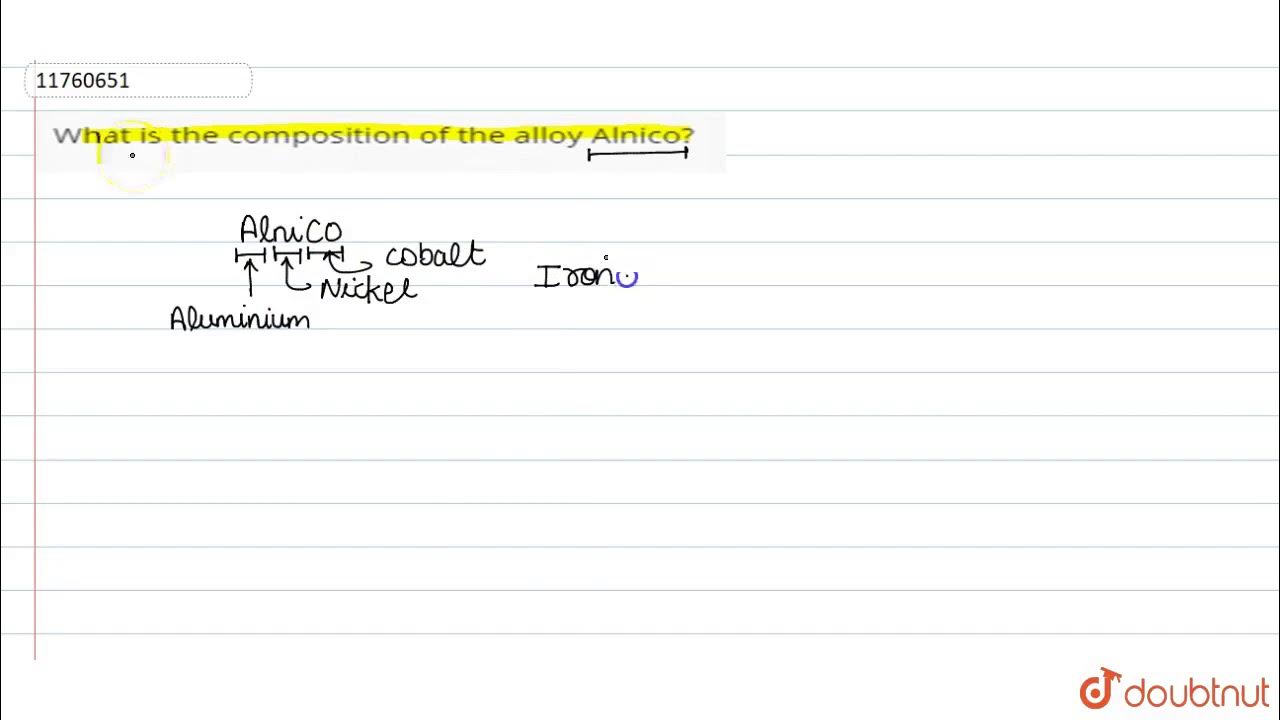 11760651
What is the composition of the alloy Alnico?
AlniCO
cobalt
Iron
Nickel
Aluminium
doubtnut